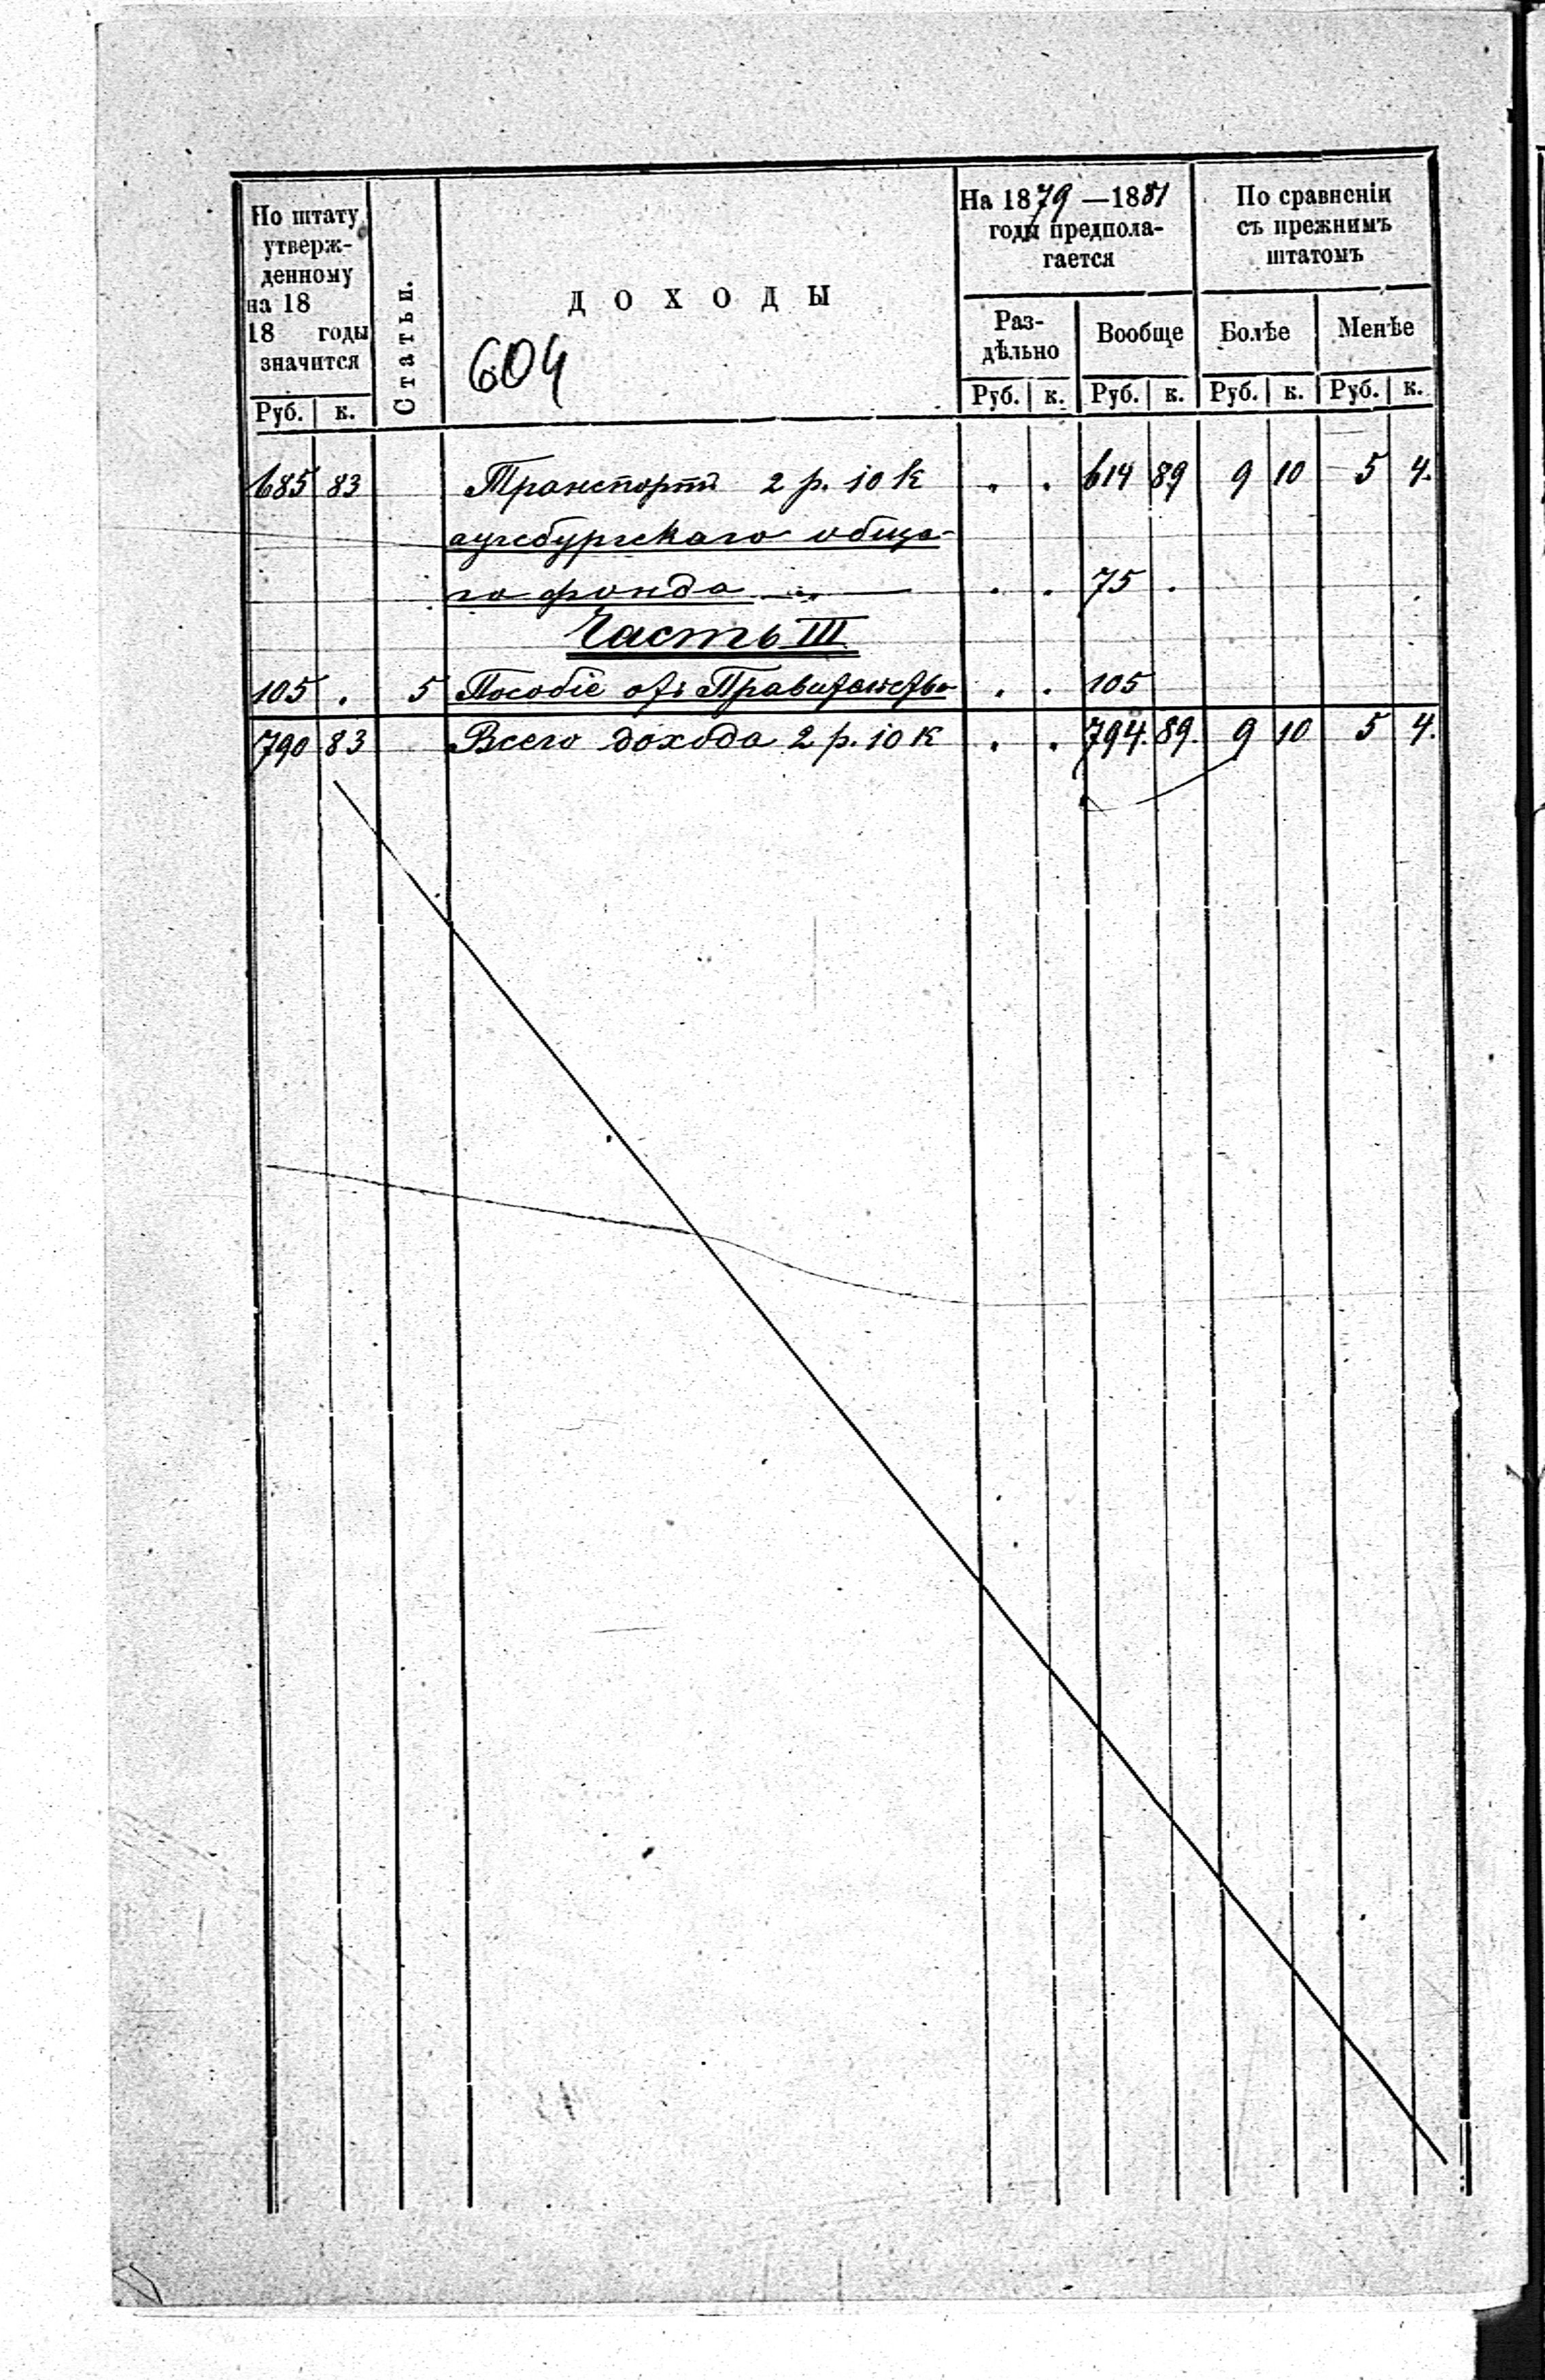 По штату утверж- денному на 18 18 годы значится
Статьи.
ДОХОДЫ
604
На 1879 —1881 годы предпола- гается
По сравненіи съ прежнимъ штатомъ
Раз- дѣльно
Вообще
Болѣе
Менѣе
Руб. к. Руб. к. Руб. к. Руб. к. Руб. к.
685 83 Транспортъ 2 р. 10 к . . 614 89 9 10 5 4.
аугсбургскаго обща-
го фонда . . 75 .
Часть III
105 . 5 Пособіе отъ Правительства . . 105
790 83 Всего дохода 2 р. 10 к . . 794. 89. 9 10 5 4.